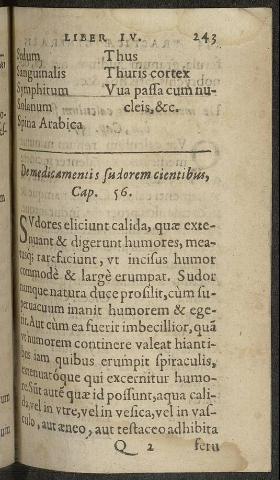 LIBER IV. 243
Sedum Thus
Sanguinalis Thuris cortex
Symphitum Vua passa cum nu-
Solanum cleis, &c.
Spina Arabica
De medicamentis sudorem cientibus,
Cap. 56.
SVdores eliciunt calida, quæ exte-
nuant & digerunt humores, mea-
tusq; rarefaciunt, vt incisus humor
commodè & largè erumpat. Sudor
namque natura duce prosilit, cùm su-
peruacuum inanit humorem & ege-
rit. Aut cùm ea fuerit imbecillior, quã
vt humorem continere valeat hianti-
bus iam quibus erumpit spiraculis,
extenuatóque qui excernitur humo-
re. Sũt autẽ quæ id possunt, aqua cali-
da, vel in vtre, vel in vesica, vel in vas-
culo, aut æneo, aut testaceo adhibita
Q 2 feru